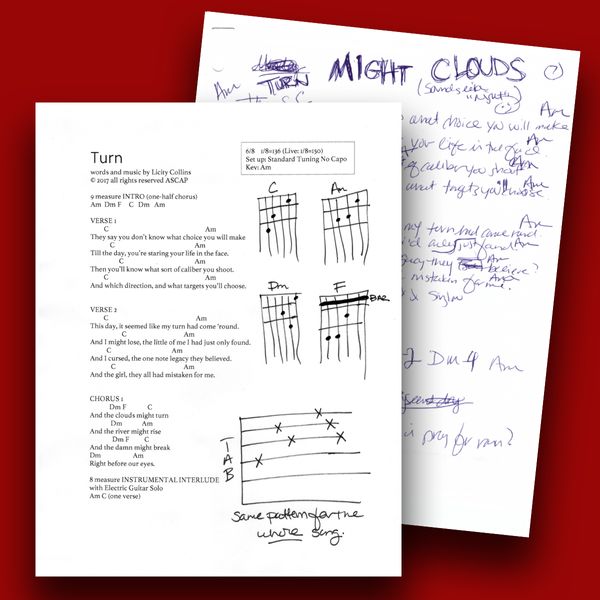 Turn
words and music by Licity Collins
© 2017 all rights reserved ASCAP
6/8 1/8=136 (Live: 1/8=150)
Set up: Standard Tuning No Capo
Key: Am
9 measure INTRO (one-half chorus)
Am Dm F C Dm Am
VERSE 1
C Am
They say you don't know what choice you will make
C Am
Till the day, you're staring your life in the face.
C Am
Then you'll know what sort of caliber you shoot.
C Am
And which direction, and what targets you'll choose.
VERSE 2
C Am
This day, it seemed like my turn had come 'round.
C Am
And I might lose, the little of me I had just only found.
C Am
And I cursed, the one note legacy they believed.
C Am
And the girl, they all had mistaken for me.
CHORUS 1
Dm F C
And the clouds might turn
Dm Am
And the river might rise
Dm F C
And the damn might break
Dm Am
Right before our eyes.
8 measure INSTRUMENTAL INTERLUDE
with Electric Guitar Solo
Am C (one verse)
C Am
Dm F
BAR
T
A
B
same pattern for the
whole song.
TURN MIGHT CLOUDS
Am
(sounds like
Am
what choice you will make
your life in the face
Am
of caliber you shoot
Am
what targets you choose
Am
my turn had come round
Am
just found
Am
they believe?
Am
mistaken for me.
2 Dm 4 Am
pray for rain?